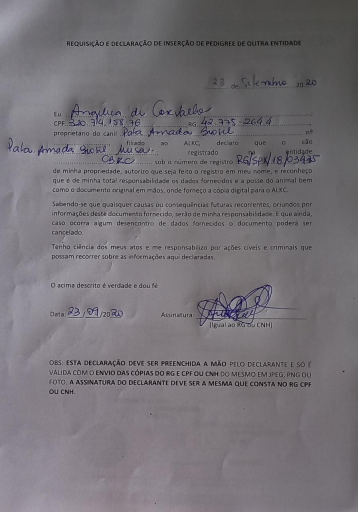 REQUISIÇÃO E DECLARAÇÃO DE INSERÇÃO DE PEDIGREE DE OUTRA ENTIDADE
23 de Setembro 2020
Eu Angelica de Carvalho
CPF RG 42.775-264-4
proprietario do canil Pata Amada Brasil nº
filiado ao ALKC, declaro que o cão
Pata Amada Brasil registrado na entidade
CBKC sob o numero de registro RG/SPX/18/03475
de minha propriedade, autorizo que seja feito o registro em meu nome, e reconheço
que é de minha total responsabilidade os dados fornecidos e a posse do animal bem
como o documento original em mãos, onde forneço a cópia digital para o ALKC.
Sabendo-se que quaisquer causas ou consequências futuras recorrentes, oriundos por
informações deste documento fornecido, serão de minha responsabilidade. E que ainda,
caso ocorra algum desencontro de dados fornecidos o documento poderá ser
cancelado.
Tenho ciência dos meus atos e me responsabilizo por ações cíveis e criminais que
possam recorrer sobre as informações aqui declaradas.
O acima descrito é verdade e dou fé
Data: 23/09/2020 Assinatura:
(Igual ao RG ou CNH)
OBS: ESTA DECLARAÇÃO DEVE SER PREENCHIDA A MÃO PELO DECLARANTE E SÓ É
VALIDA COM O ENVIO DAS CÓPIAS DO RG E CPF OU CNH DO MESMO EM JPEG, PNG OU
FOTO. A ASSINATURA DO DECLARANTE DEVE SER A MESMA QUE CONSTA NO RG CPF
OU CNH.